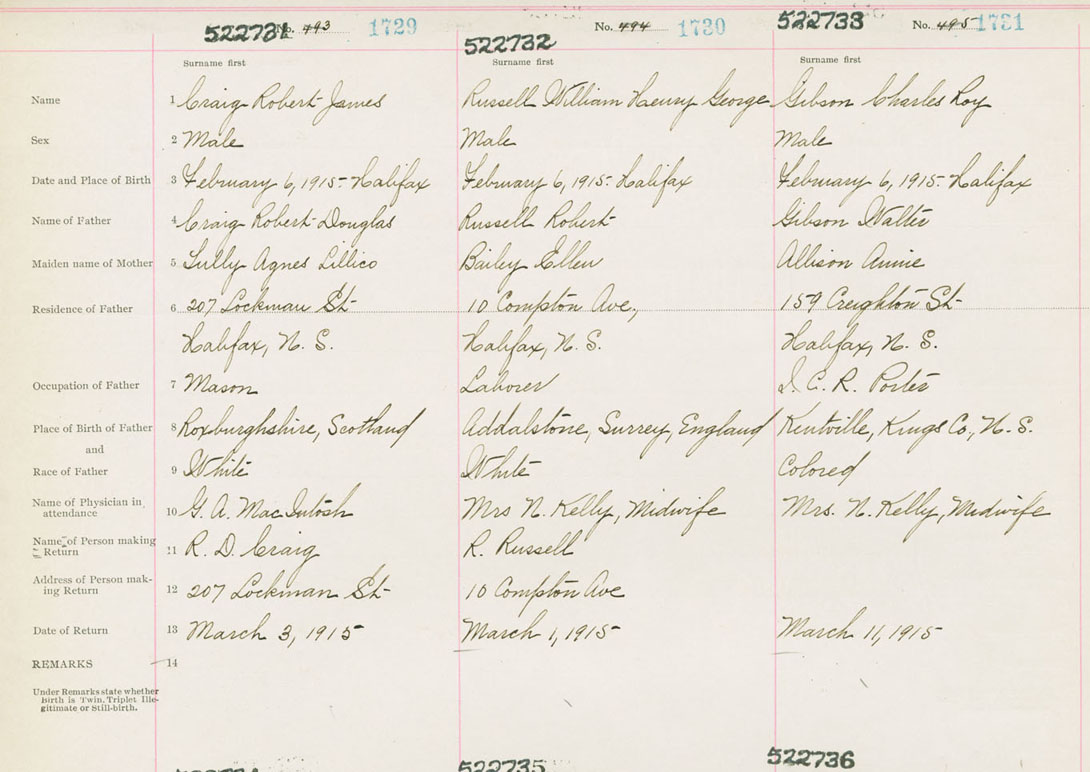 522731 No. 493 1729 522732 No. 494 1730 522733 No. 495 1731
Surname first Surname first Surname first
Name 1 Craig Robert James Russell William Henry George Gibson Charles Roy
Sex 2 Male Male Male
Date and Place of Birth 3 February 6, 1915 - Halifax February 6, 1915 - Halifax February 6, 1915 - Halifax
Name of Father 4 Craig Robert Douglas Russell Robert Gibson Walter
Maiden name of Mother 5 Agnes Lillico Bailey Ellen Allison Annie
Residence of Father 6 207 Lockman St 10 Compton Ave., 159 Creighton St
Halifax, N. S. Halifax, N. S. Halifax, N. S.
Occupation of Father 7 Mason Laborer I. C. R. Porter
Place of Birth of Father 8 Roxburghshire, Scotland Addalstone, Surrey, England Kentville, Kings Co., N. S.
and
Race of Father 9 White White Colored
Name of Physician in
attendance 10 G. A. MacIntosh Mrs N. Kelly, Midwife Mrs. N. Kelly, Midwife
Name of Person making
Return 11 R. D. Craig R. Russell
Address of Person mak-
ing Return 12 207 Lockman St 10 Compton Ave
Date of Return 13 March 3, 1915 March 1, 1915 March 11, 1915
REMARKS 14
Under Remarks state whether
Birth is Twin, Triplet Ille-
gitimate or Still-birth.
522735 522736